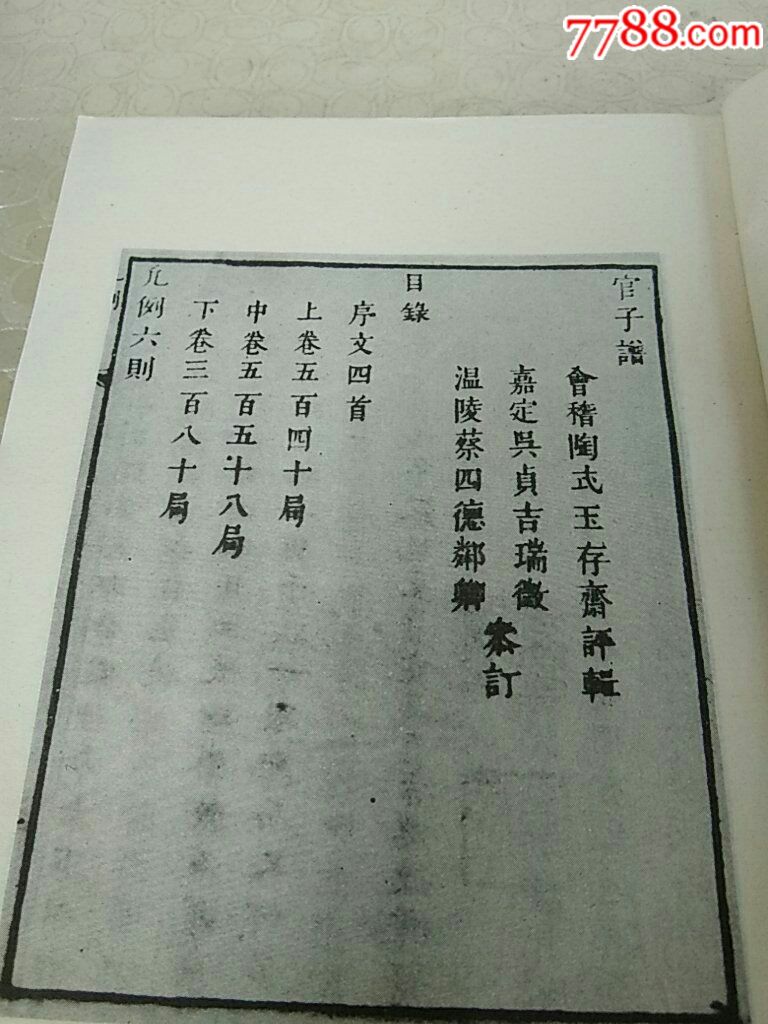 7788.com
官子譜
會稽陶式玉存齋評輯
嘉定吳貞吉瑞徵
溫陵蔡四德鄰卿
叅訂
目錄
序文四首
上卷五百四十局
中卷五百五十八局
下卷三百八十局
凡例六則